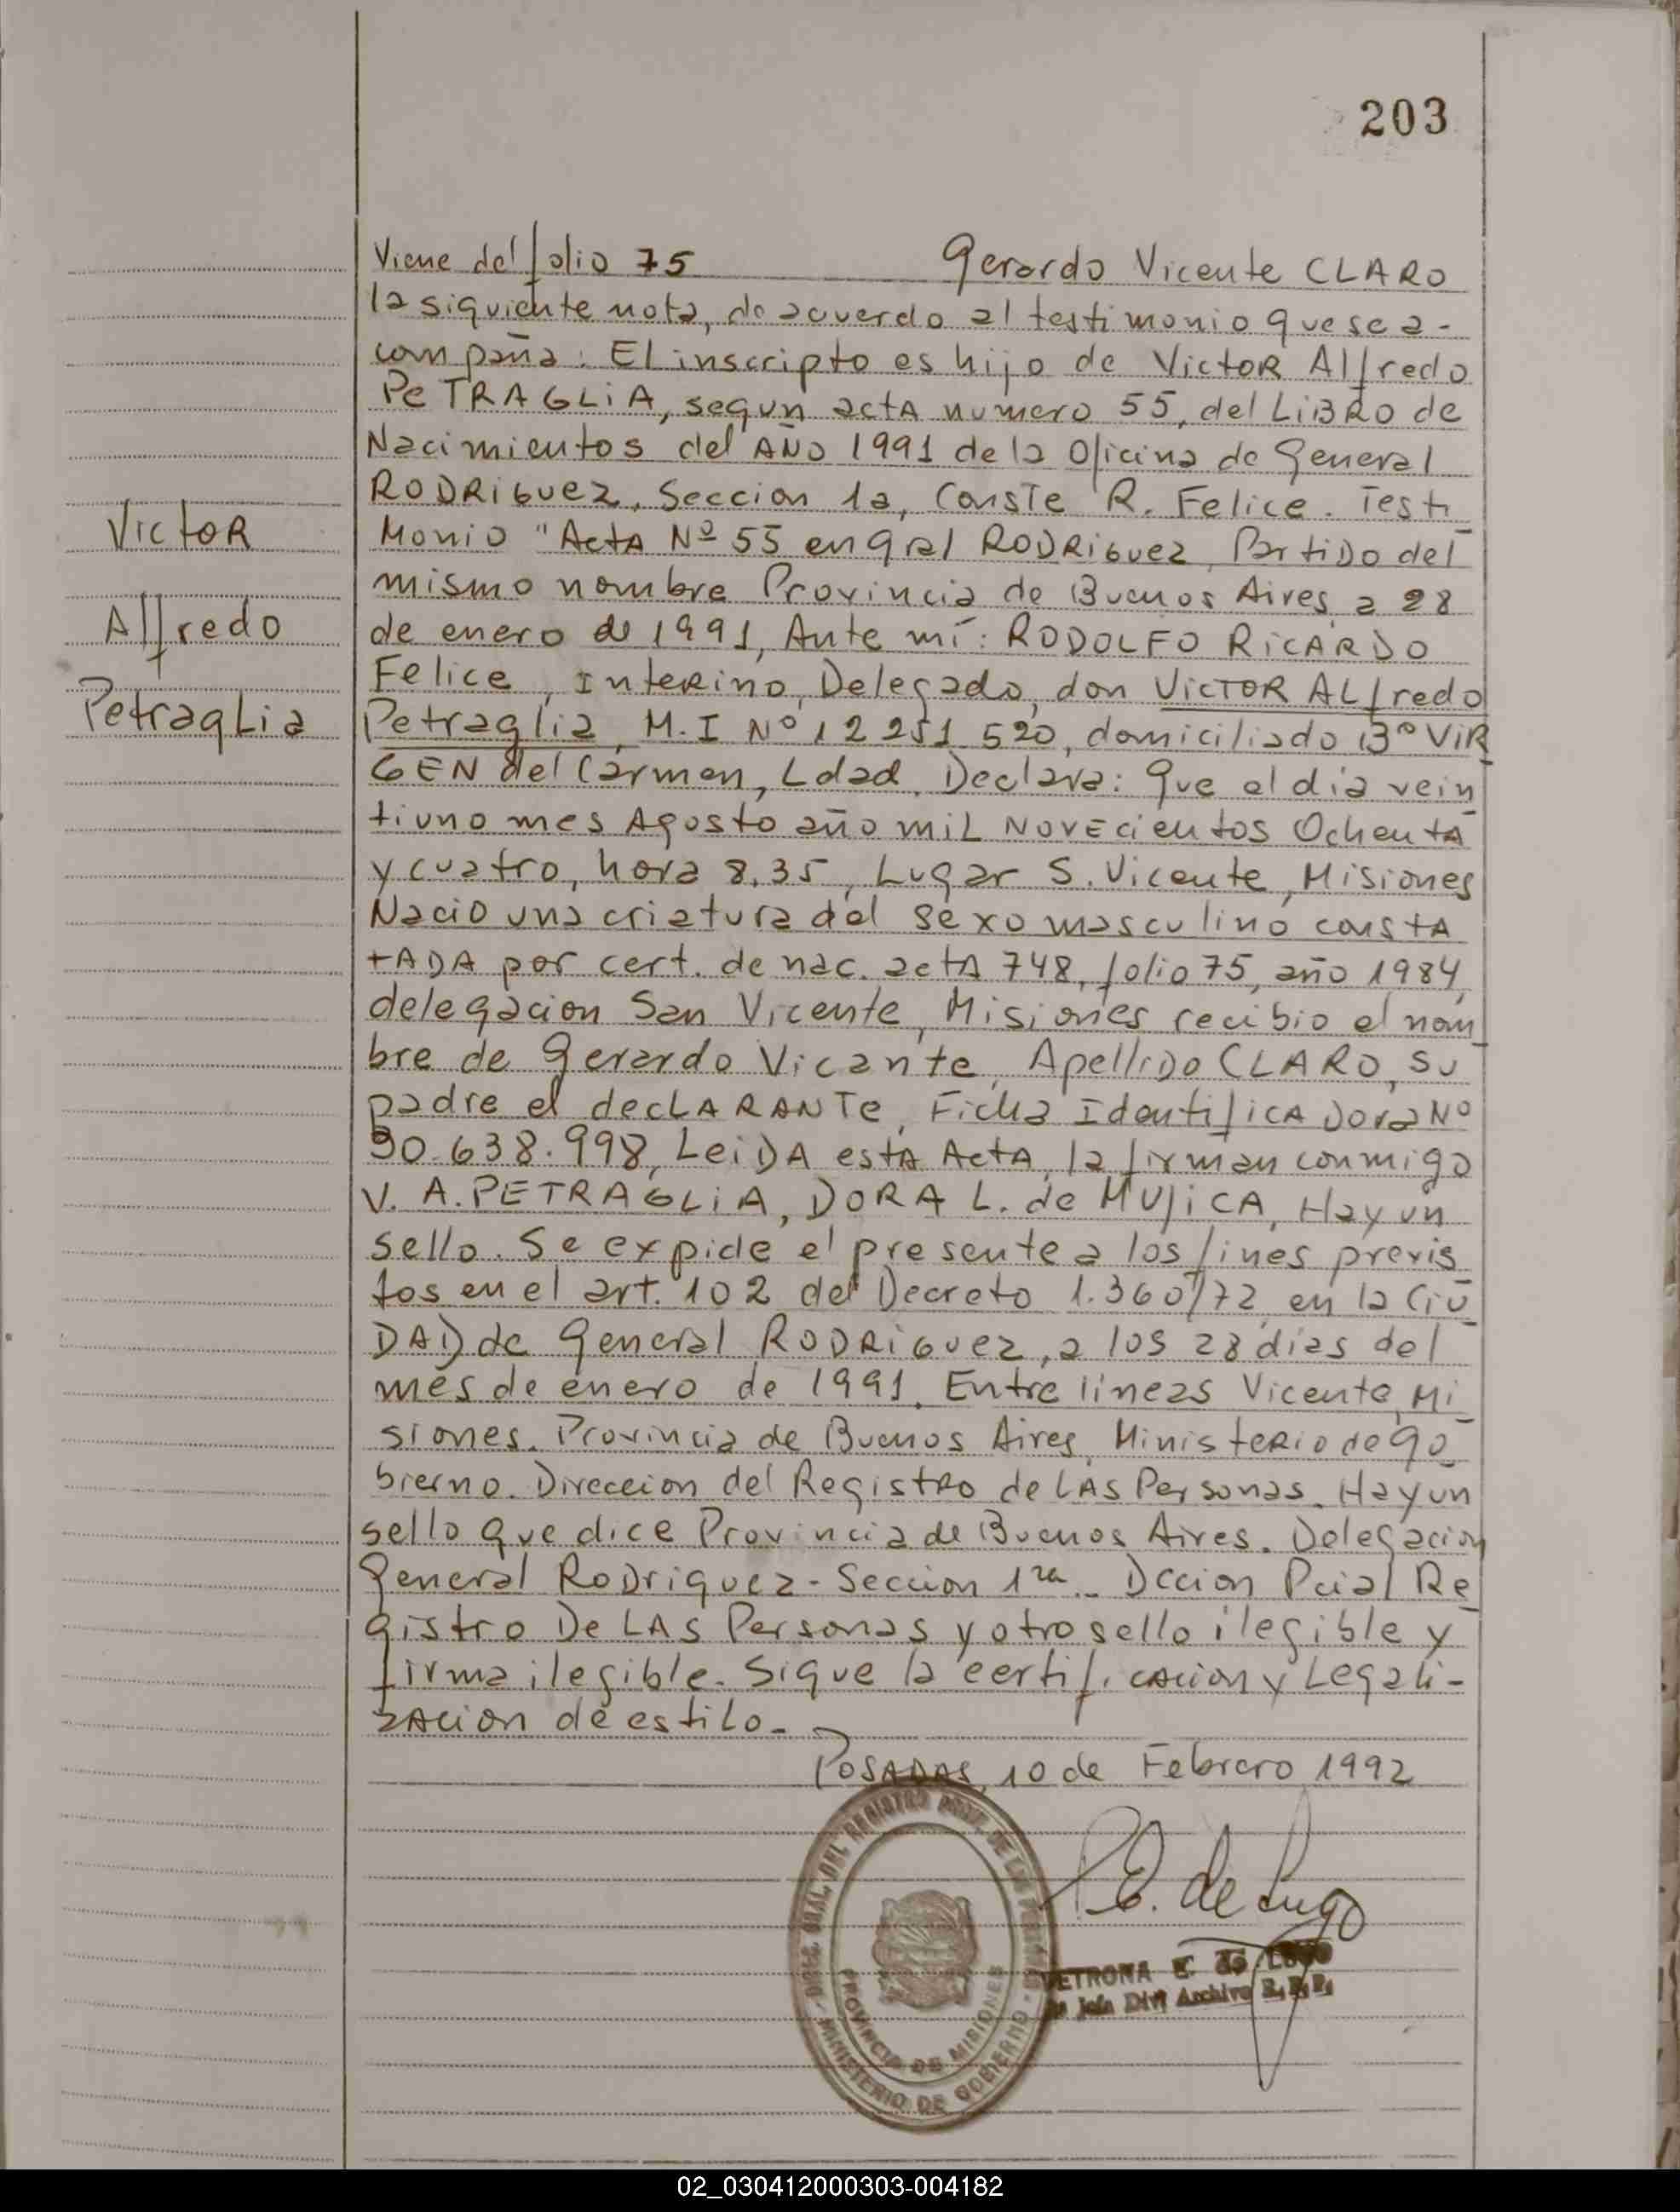 203
Viene del folio 75 Gerardo Vicente CLARO
la siguiente nota, de acuerdo al testimonio que se a-
compaña: El inscripto es hijo de Victor Alfredo
PeTRAGLiA, segun acta numero 55, del LiBRO de
Nacimientos del AÑO 1991 de la Oficina de General
RODRiGuez, Seccion 1a, Conste R. Felice. Testi
Monio "Acta Nº 55 en gral RODRiGuez, Partido del
mismo nombre Provincia de Buenos Aires, a 28
de enero de 1991, Ante mí: RODOLFO RiCARDO
Felice, Interino, Delegado, don VicTOR ALfredo
Petraglia, M.I Nº 12 251 520, domiciliado Bº ViR
GEN del Carmen, Ldad. Declara: Que el día vein
tiuno mes Agosto año miL Novecientos Ochenta
y cuatro, hora 8.35, Lugar S. Vicente, Misiones
Nacio una criatura del sexo masculino consta
tADA por cert. de nac. acta 748, folio 75, año 1984,
delegacion San Vicente, Misiones recibio el nom
bre de Gerardo Vicente, Apellido CLARO, su
padre el decLARANTe, Ficha IdentificADora Nº
30.638.998, LeiDA esta Acta, la firman conmigo
V. A. PETRAGLiA, DORA L. de MUJiCA, Hay un
sello. Se expide el presente a los fines previs
tos en el art. 102 del Decreto 1.360/72, en la Ciu
DAD de General RODRiGuez, a los 28 días del
mes de enero de 1991. Entre líneas Vicente, Mi
siones. Provincia de Buenos Aires, Ministerio de go
bierno. Direccion del Registro de LAs Personas. Hay un
sello que dice Provincia de Buenos Aires. Delegacion
General Rodriguez - Seccion 1ra.. Dccion Pcial Re
gistro De LAs Personas y otro sello ilegible y
firma ilegible. Sigue la certificacion y Legali-
zacion de estilo.-
Posadas, 10 de Febrero 1992
Victor
Alfredo
PetragLia
P.E. de Lugo
PETRONA E. de LUGO
Jefa Div. Archivo R.P.P.
DIREC. GRAL. DEL REGISTRO PROV. DE LAS PERSONAS
PROVINCIA DE MISIONES
MINISTERIO DE GOBIERNO
02_030412000303-004182